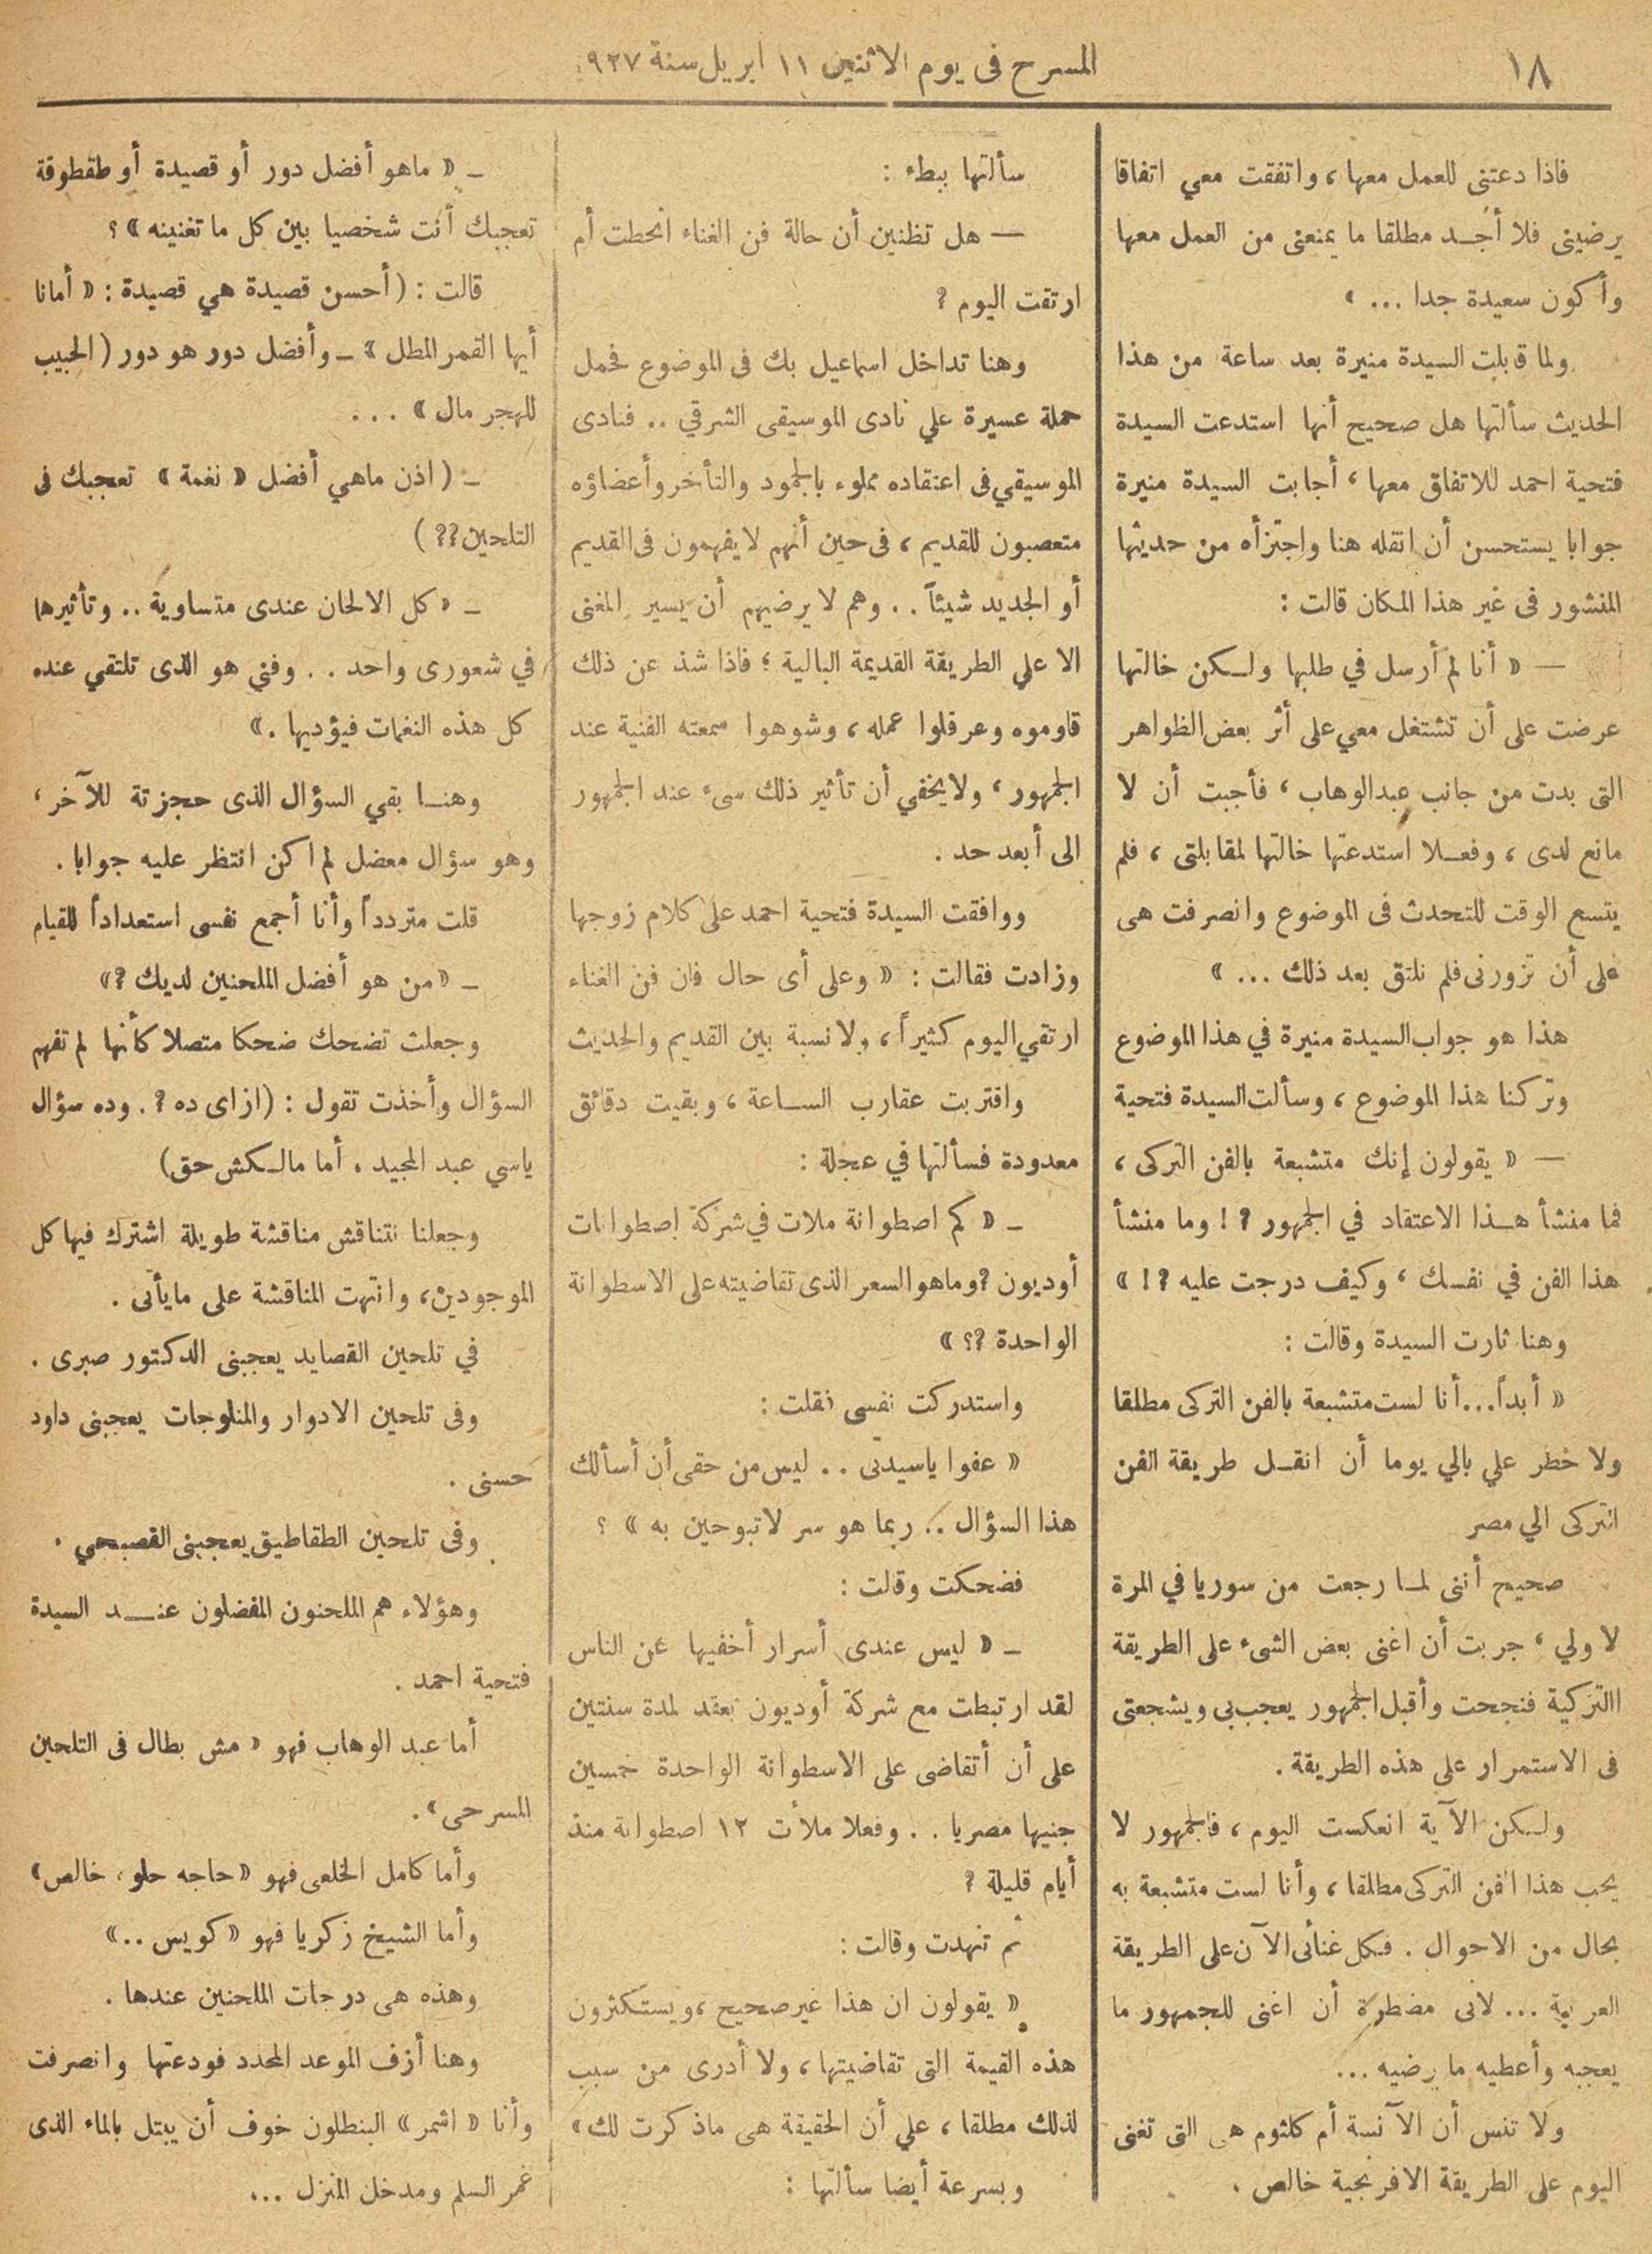 ١٨
المسرح فى يوم الاثنين ١١ ابريل سنة ٩٢٧
فاذا دعتنى للعمل معها ، واتفقت معي اتفاقا
يرضينى فلا أجـد مطلقا ما يمنعنى من العمل معها
وأكون سعيدة جدا ... »
ولما قابلت السيدة منيرة بعد ساعة من هذا
الحديث سألتها هل صحيح أنها استدعت السيدة
فتحية احمد للاتفاق معها ، أجابت السيدة منيرة
جوابا يستحسن أن انقله هنا واجتزأه من حديثها
المنشور فى غير هذا المكان قالت :
— « أنا لم أرسل في طلبها ولـكن خالتها
عرضت على أن تشتغل معي على أثر بعض الظواهر
التى بدت من جانب عبدالوهاب ، فأجبت أن لا
مانع لدى ، وفعـلا استدعتها خالتها لمقابلتى ، فلم
يتسع الوقت للتحدث فى الموضوع وانصرفت هى
على أن تزورنى فلم نلتق بعد ذلك ... »
هذا هو جواب السيدة منيرة في هذا الموضوع
وتركنا هذا الموضوع ، وسألت السيدة فتحية
— « يقولون إنك متشبعة بالفن التركى ،
فما منشأ هـذا الاعتقاد في الجمهور ? ! وما منشأ
هذا الفن في نفسك ، وكيف درجت عليه ? ! »
وهنا ثارت السيدة وقالت :
« أبداً...أنا لست متشبعة بالفن التركى مطلقا
ولا خطر علي بالي يوما أن انقـل طريقة الفن
التركى الي مصر
صحيح أننى لمـا رجعت من سوريا في المرة
لا ولي ، جربت أن اغنى بعض الشىء على الطريقة
االتركية فنجحت وأقبل الجمهور يعجب بى ويشجعتى
فى الاستمرار على هذه الطريقة .
ولـكن الآية انعكست اليوم ، فالجمهور لا
يحب هذا الفن التركى مطلقا ، وأنا لست متشبعة به
بحال من الاحوال . فكل غنأئى الآن على الطريقة
العربية ... لانى مضطرة أن اغنى للجمهور ما
يعجبه وأعطيه ما يرضيه ...
ولا تنس أن الآنسة أم كلثوم هى التى تغنى
اليوم على الطريقة الافرنجية خالص .
سألتها ببطء :
— هل تظنين أن حالة فن الغناء انحطت أم
ارتقت اليوم ?
وهنا تداخل اسماعيل بك فى الموضوع فحمل
حملة عسيرة علي نادى الموسيقى الشرقي .. فنادى
الموسيقي فى اعتقاده مملوء بالجمود والتأخر وأعضاؤه
متعصبون للقديم ، فى حين أنهم لا يفهمون فى القديم
أو الجديد شيئاً . . وهم لا يرضيهم أن يسير المغنى
الا علي الطريقة القديمة البالية ؛ فاذا شذ عن ذلك
قاوموه وعرقلوا عمله ، وشوهوا سمعته الفنية عند
الجمهور ، ولا يخفي أن تأثير ذلك سىء عند الجمهور
الى أبعد حد .
ووافقت السيدة فتحية احمد على كلام زوجها
وزادت فقالت : « وعلى أى حال فان فن الغناء
ارتقي اليوم كثيراً ، ولا نسبة بين القديم والحديث
واقتربت عقارب الساعة ، وبقيت دقائق
معدودة فسألتها في عجلة :
ـ « كم اصطوانة ملات في شركة اصطوانات
أوديون ? وماهو السعر الذى تقاضيته على الاسطوانة
الواحدة ?؟ »
واستدركت نفسى فقلت :
« عفوا ياسيدتى .. ليس من حقى أن أسألك
هذا السؤال .. ربما هو سر لا تبوحين به » ؟
فضحكت وقالت :
ـ « ليس عندى أسرار أخفيها عن الناس
لقد ارتبطت مع شركة أوديون بعقد لمدة سنتين
على أن أتقاضى على الاسطوانة الواحدة خمسين
جنيها مصريا . . وفعلا ملأت ١٢ اصطوانة منذ
أيام قليلة ?
ثم تنهدت وقالت :
« يقولون ان هذا غير صحيح ، ويستكثرون
هذه القيمة التى تقاضيتها ، ولا أدرى من سبب
لذلك مطلقا ، علي أن الحقيقة هى ماذكرت لك»
وبسرعة أيضا سألتها :
ـ « ماهو أفضل دور أو قصيدة أو طقطوقة
تعجبك أنت شخصيا بين كل ما تغنينه » ؟
قالت : ( أحسن قصيدة هي قصيدة : « أمانا
أيها القمر المطل » ـ وأفضل دور هو دور ( الحبيب
للهجر مال » . . .
ـ ( اذن ماهي أفضل « نغمة » تعجبك فى
التلحين ?? )
ـ « كل الالحان عندى متساوية .. وتأثيرها
في شعورى واحد . . وفني هو الذى تلتقي عنده
كل هذه النغمات فيؤديها . »
وهنـا بقي السؤال الذى حجزتة للآخر ،
وهو سؤال معضل لم اكن انتظر عليه جوابا .
قلت متردداً وأنا أجمع نفسى استعداداً للقيام
ـ «من هو أفضل الملحنين لديك ?»
وجعلت تضحك ضحكا متصلا كأنها لم تفهم
السؤال وأخذت تقول : ( ازاى ده ? . وده سؤال
ياسي عبد المجيد . أما مالـكش حق)
وجعلنا نتناقش مناقشة طويلة اشترك فيها كل
الموجودين ، وانتهت المناقشة على مايأتى .
في تلحين القصايد يعجبنى الدكتور صبرى .
وفى تلحين الادوار والمنلوجات يعجبنى داود
حسنى .
وفى تلحين الطقاطيق يعجبنى القصبجي .
وهؤلاء هم الملحنون المفضلون عنـد السيدة
فتحية احمد .
أما عبد الوهاب فهو « مش بطال فى التلحين
المسرحى» .
وأما كامل الخلعى فهو «حاجه حلو ، خالص»
وأما الشيخ زكريا فهو « كويس ..»
وهذه هى درجات الملحنين عندها .
وهنا أزف الموعد المحدد فودعتها وانصرفت
وأنا « اشمر » البنطلون خوف أن يبتل بالماء الذى
غمر السلم ومدخل المنزل ...